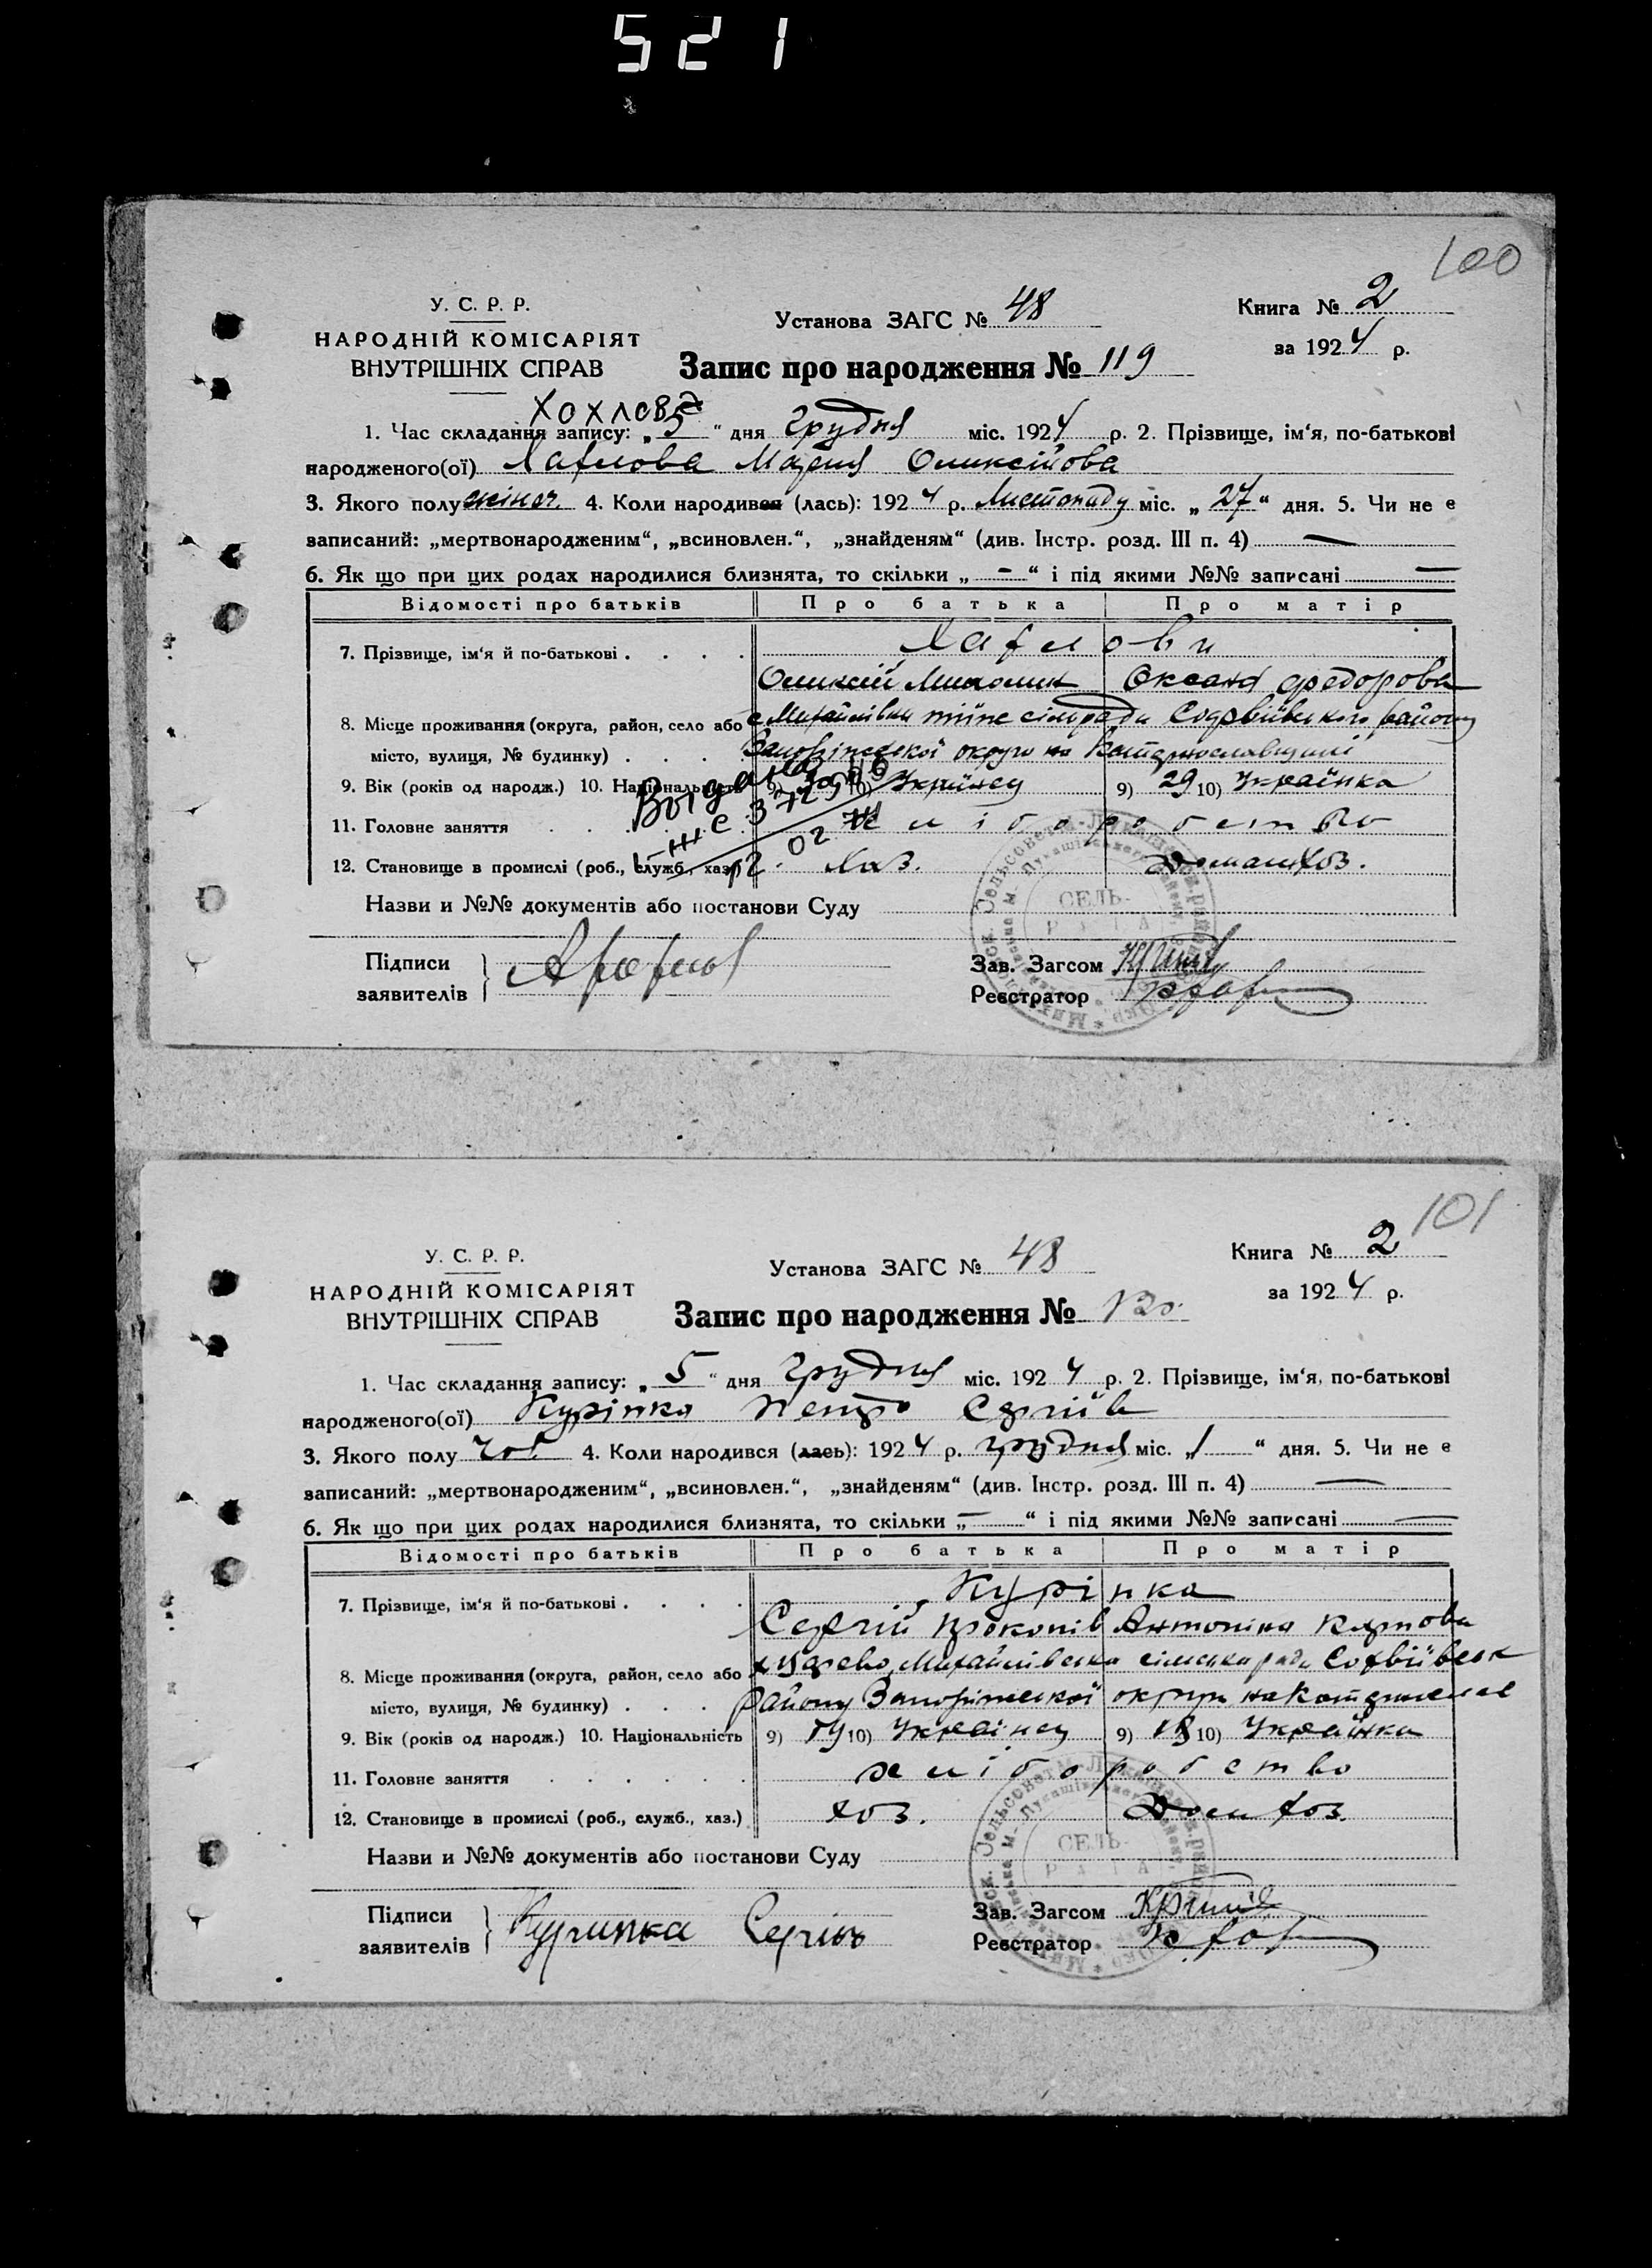 521
100
У. С. Р. Р.
НАРОДНІЙ КОМІСАРІЯТ
ВНУТРІШНІХ СПРАВ
Установа ЗАГС № 48
Книга № 2
за 1924 р.
Запис про народження № 119
Хохлова
1. Час складання запису: „5" дня Грудня міс. 1924 р. 2. Прізвище, ім'я, по-батькові
народженого(ої) Хахлова Марія Оликсійова
3. Якого полу жіноч. 4. Коли народився (лась): 1924 р. Листопаду міс. „27" дня. 5. Чи не є
записаний: „мертвонародженим", „всиновлен.", „знайденям" (див. Інстр. розд. III п. 4) —
6. Як що при цих родах народилися близнята, то скільки „-" і під якими №№ записані —
Відомості про батьків Про батька Про матір
7. Прізвище, ім'я й по-батькові . . . . Хахлови
Оликсій Оксана Федорова
8. Місце проживання (округа, район, село або с Михайлівка сільради Софіівського району
місто, вулиця, № будинку) . . . . Запоріжської округи на Катеринославщині
9. Вік (років од народж.) 10. Національність 9) 30 10) Українец 9) 29 10) Українка
Выдано
11. Головне заняття . . . . . . хліборобство
12. Становище в промислі (роб., служб., хаз.) Хаз. домашхоз.
Назви и №№ документів або постанови Суду
СЕЛЬ-
РАДА
Підписи
заявителів
Зав. Загсом
Реєстратор
101
У. С. Р. Р.
НАРОДНІЙ КОМІСАРІЯТ
ВНУТРІШНІХ СПРАВ
Установа ЗАГС № 48
Книга № 2
за 1924 р.
Запис про народження № 120.
1. Час складання запису: „5" дня Грудня міс. 1924 р. 2. Прізвище, ім'я, по-батькові
народженого(ої) Курінка Петро Сергіів
3. Якого полу Чол. 4. Коли народився (лась): 1924 р. грудня міс. „1" дня. 5. Чи не є
записаний: „мертвонародженим", „всиновлен.", „знайденям" (див. Інстр. розд. III п. 4) —
6. Як що при цих родах народилися близнята, то скільки „—" і під якими №№ записані —
Відомості про батьків Про батька Про матір
7. Прізвище, ім'я й по-батькові . . . . Курінка
Сергій Прокопів Антоніна Карпова
8. Місце проживання (округа, район, село або Михайлівська сільська рада Софіівськ
місто, вулиця, № будинку) . . . району Запоріжської округи на Катеринослав
9. Вік (років од народж.) 10. Національність 9) 19 10) Українец 9) 18 10) Українка
11. Головне заняття . . . . . . хліборобство
12. Становище в промислі (роб., служб., хаз.) хоз. Дом хоз.
Назви и №№ документів або постанови Суду
СЕЛЬ-
РАДА
Підписи
заявителів Куринка Сергій
Зав. Загсом
Реєстратор